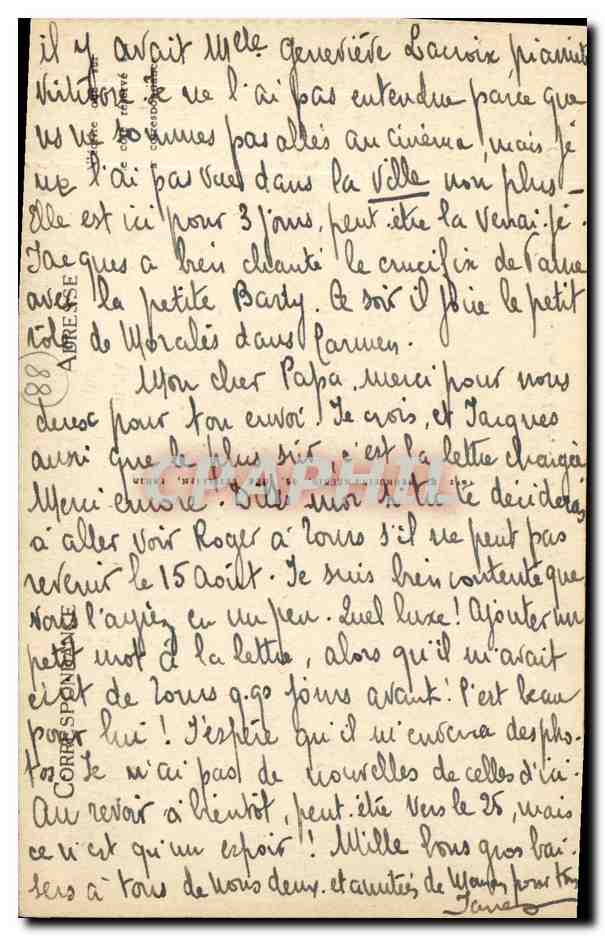 il y avait Melle Geneviève Lacroix pianiste
virtuose je ne l'ai pas entendue parce que
ns ne sommes pas allés au cinéma, mais je
ne l'ai pas vue dans la Ville non plus _
Elle est ici pour 3 jours, peut-être la verrai-je.
Jacques a bien chanté le crucifix de Faure
avec la petite Barty. Ce soir il joue le petit
rôle de Moralès dans Carmen.
Mon cher Papa, merci pour nous
deux pour ton envoi. Je crois, et Jacques
aussi que le plus sûr, c'est la lettre chargée
Merci encore. Dites-moi si tu te décideras
à aller voir Roger à Tours s'il ne peut pas
revenir le 15 Août. Je suis bien contente que
vous l'ayiez eu un peu. Quel luxe! Ajouter un
petit mot à la lettre, alors qu'il m'avait
écrit de Tours q.qs jours avant! C'est beau
pour lui! J'espère qu'il m'enverra des pho-
tos. Je n'ai pas de nouvelles de celles d'ici.
Au revoir à bientôt, peut-être vers le 25, mais
ce n'est qu'un espoir! Mille bons gros bai-
sers à tous de nous deux. et amitiés de pour tous
ADRESSE
CORRESPONDANCE
(88)
CPAPHIL